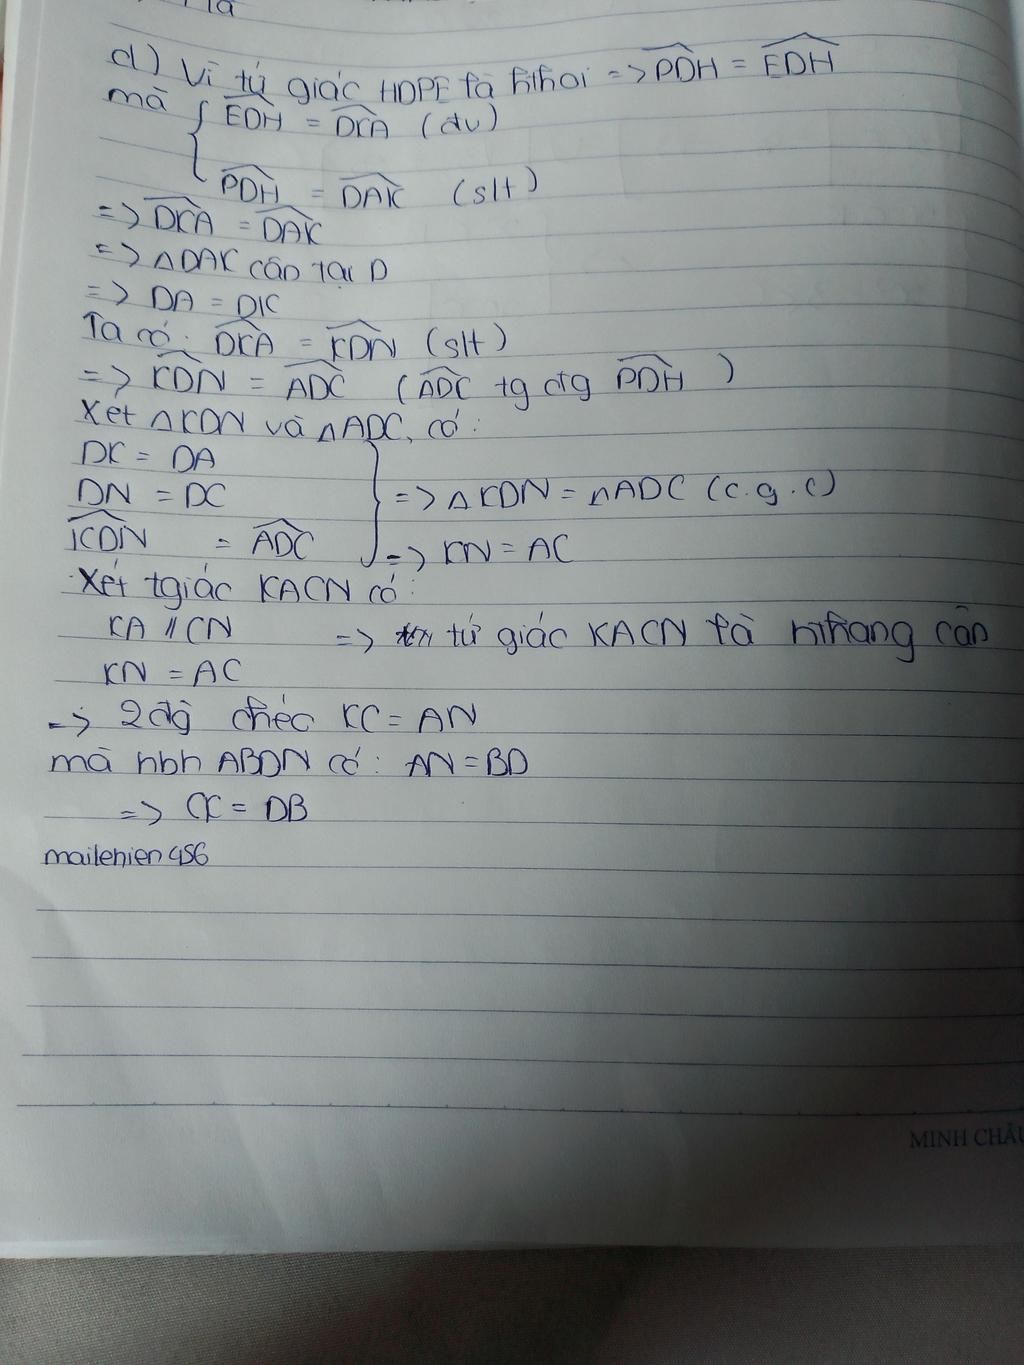 là
d) Vì tứ giác HDPE là hthoi => PDH = EDH
mà { EDH = DKA (đv)
PDH = DAK (slt)
=> DKA = DAK
=> △DAK cân tại D
=> DA = DK
Ta có: DKA = KDN (slt)
=> KDN = ADC (ADC tg ctg PDH)
Xét △KDN và △ADC, có:
DK = DA
DN = DC => △KDN = △ADC (c.g.c)
KDN = ADC => KN = AC
Xét tgiác KACN có:
KA // CN => tứ giác KACN là hthang cân
KN = AC
=> 2 đg chéo KC = AN
mà hbh ABDN có: AN = BD
=> CK = DB
mailehien456
MINH CHÂU